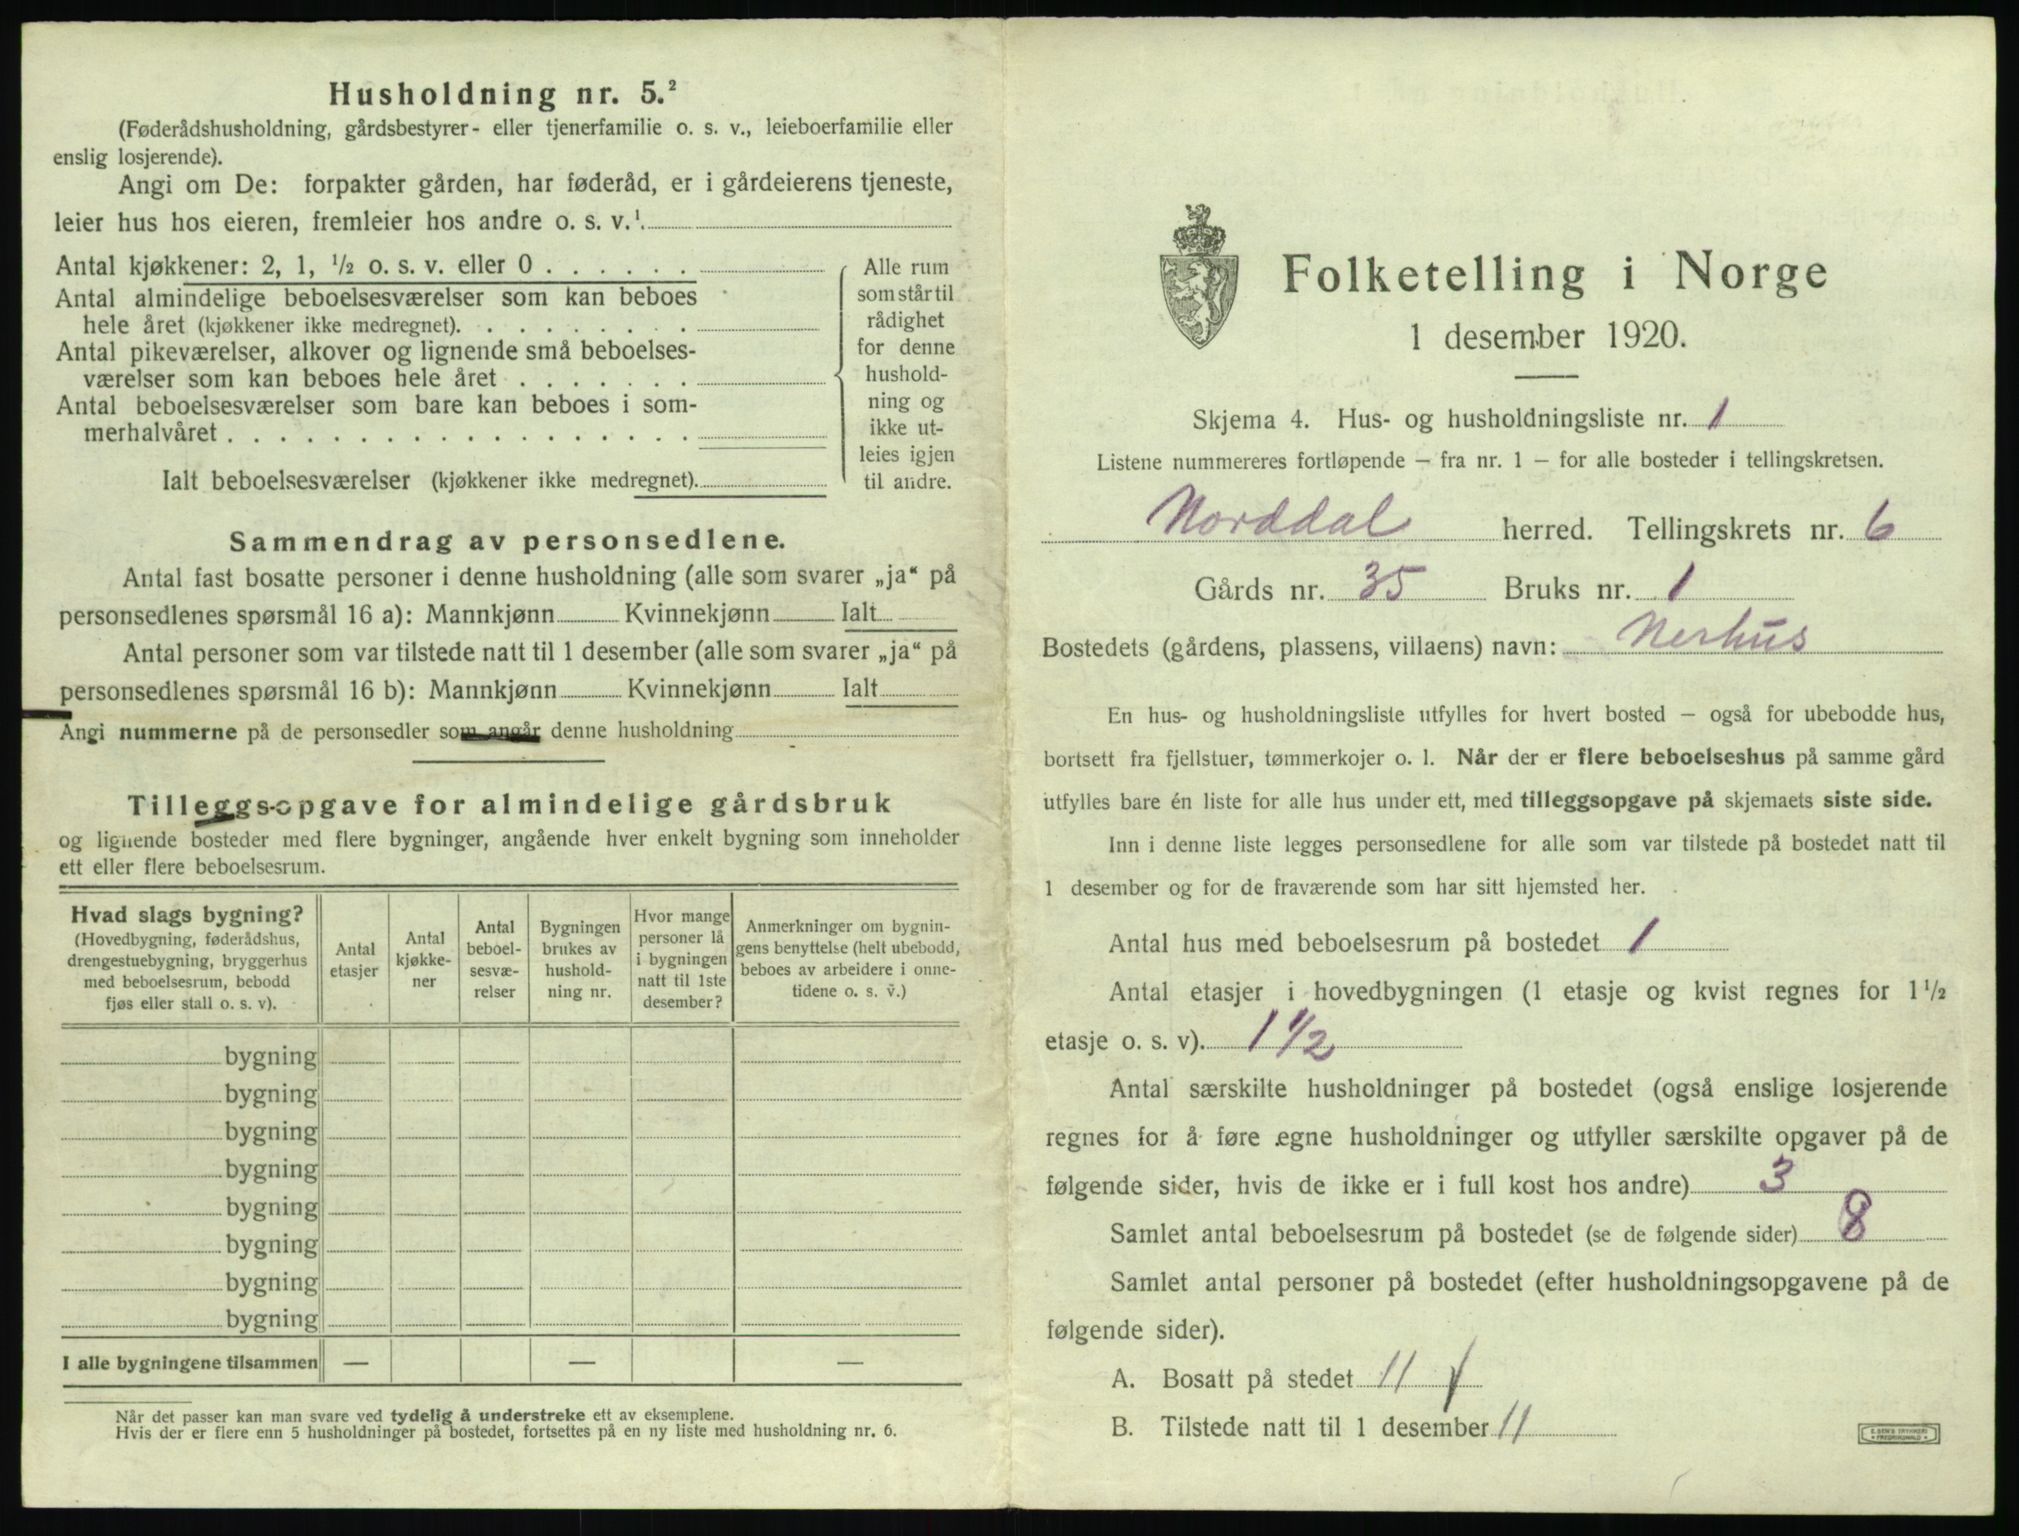 Husholdning nr. 5.²
(Føderådshusholdning, gårdsbestyrer- eller tjenerfamilie o. s. v., leieboerfamilie eller
enslig losjerende).
Angi om De: forpakter gården, har føderåd, er i gårdeierens tjeneste,
leier hus hos eieren, fremleier hos andre o. s. v.¹
Antal kjøkkener: 2, 1, ½ o. s. v. eller 0 . . . . . .
Antal almindelige beboelsesværelser som kan beboes
hele året (kjøkkener ikke medregnet). . . . . . . . .
Antal pikeværelser, alkover og lignende små beboelses-
værelser som kan beboes hele året . . . . . . .
Antal beboelsesværelser som bare kan beboes i som-
merhalvåret . . . . . . . . . . . . . . . . . .
Ialt beboelsesværelser (kjøkkener ikke medregnet).
Alle rum
som står til
rådighet
for denne
hushold-
ning og
ikke ut-
leies igjen
til andre.
Sammendrag av personsedlene.
Antal fast bosatte personer i denne husholdning (alle som svarer „ja“ på
personsedlenes spørsmål 16 a): Mannkjønn Kvinnekjønn Ialt
Antal personer som var tilstede natt til 1 desember (alle som svarer „ja“ på
personsedlenes spørsmål 16 b): Mannkjønn Kvinnekjønn Ialt
Angi nummerne på de personsedler som angår denne husholdning
Tilleggs-opgave for almindelige gårdsbruk
og lignende bosteder med flere bygninger, angående hver enkelt bygning som inneholder
ett eller flere beboelsesrum.
Hvad slags bygning?
(Hovedbygning, føderådshus,
drengestuebygning, bryggerhus
med beboelsesrum, bebodd
fjøs eller stall o. s. v).
Antal
etasjer
Antal
kjøkke-
ner
Antal
beboel-
sesvæ-
relser
Bygningen
brukes av
hushold-
ning nr.
Hvor mange
personer lå
i bygningen
natt til 1ste
desember?
Anmerkninger om bygnin-
gens benyttelse (helt ubebodd,
beboes av arbeidere i onne-
tidene o. s. v.)
bygning
bygning
bygning
bygning
bygning
bygning
bygning
bygning
I alle bygningene tilsammen — — —
Når det passer kan man svare ved tydelig å understreke ett av eksemplene.
Hvis der er flere enn 5 husholdninger på bostedet, fortsettes på en ny liste med husholdning nr. 6.
Folketelling i Norge
1 desember 1920.
Skjema 4. Hus- og husholdningsliste nr. 1
Listene nummereres fortløpende — fra nr. 1 — for alle bosteder i tellingskretsen.
Norddal herred. Tellingskrets nr. 6
Gårds nr. 35 Bruks nr. 1
Bostedets (gårdens, plassens, villaens) navn: Nerhus
En hus- og husholdningsliste utfylles for hvert bosted — også for ubebodde hus,
bortsett fra fjellstuer, tømmerkojer o. l. Når der er flere beboelseshus på samme gård
utfylles bare én liste for alle hus under ett, med tilleggsopgave på skjemaets siste side.
Inn i denne liste legges personsedlene for alle som var tilstede på bostedet natt til
1 desember og for de fraværende som har sitt hjemsted her.
Antal hus med beboelsesrum på bostedet 1
Antal etasjer i hovedbygningen (1 etasje og kvist regnes for 1½
etasje o. s. v). 1 1/2
Antal særskilte husholdninger på bostedet (også enslige losjerende
regnes for å føre egne husholdninger og utfyller særskilte opgaver på de
følgende sider, hvis de ikke er i full kost hos andre) 3
Samlet antal beboelsesrum på bostedet (se de følgende sider) 8
Samlet antal personer på bostedet (efter husholdningsopgavene på de
følgende sider).
A. Bosatt på stedet 11
B. Tilstede natt til 1 desember 11